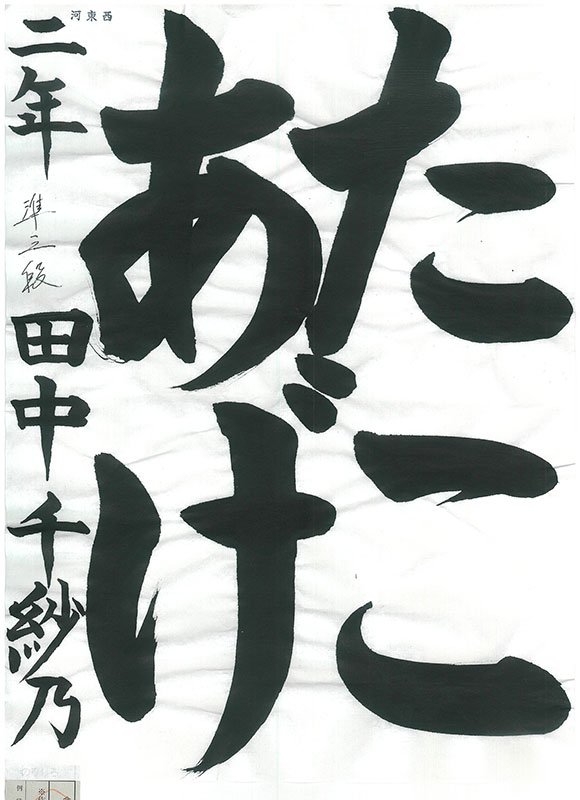 河東西
たこ
あげ
二年 準三段 田中千紗乃